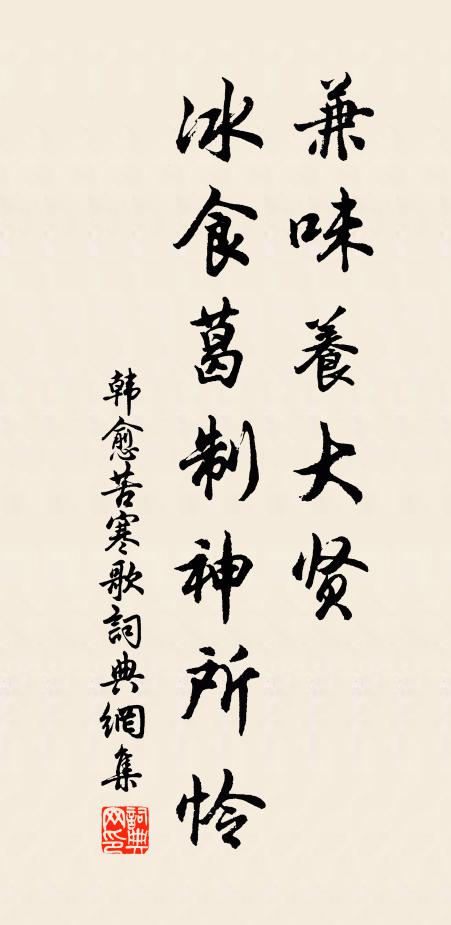 兼味養大贤
冰食葛制神所怜
韩愈苦寒歌詞典網集
詞典网印